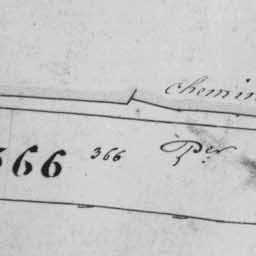 chemin
366 366 Per